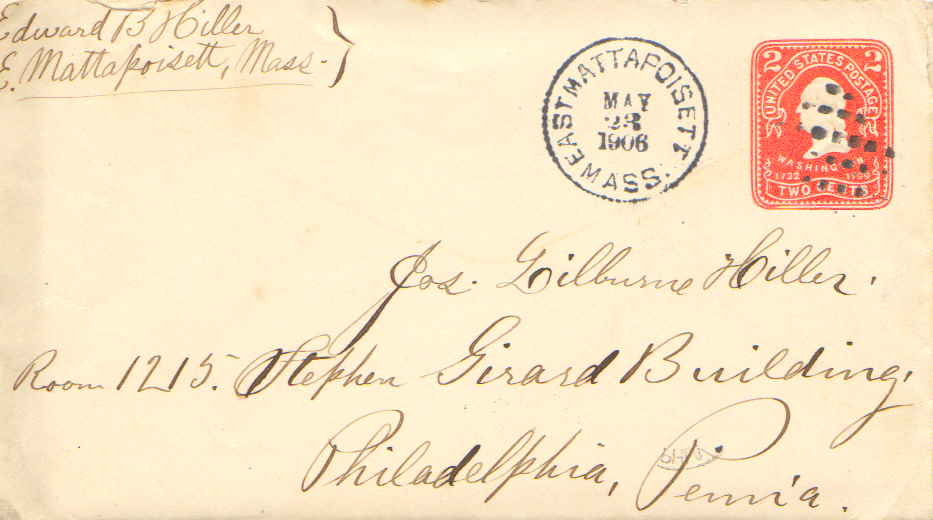 Edward B Hiller
E. Mattapoisett, Mass.
EAST MATTAPOISETT MASS.
MAY
23
1906
2 2
UNITED STATES POSTAGE
WASHINGTON
1732 1799
TWO CENTS
Jos. Gilburne Hiller.
Room 1215. Stephen Girard Building,
Philadelphia, Penn'a.